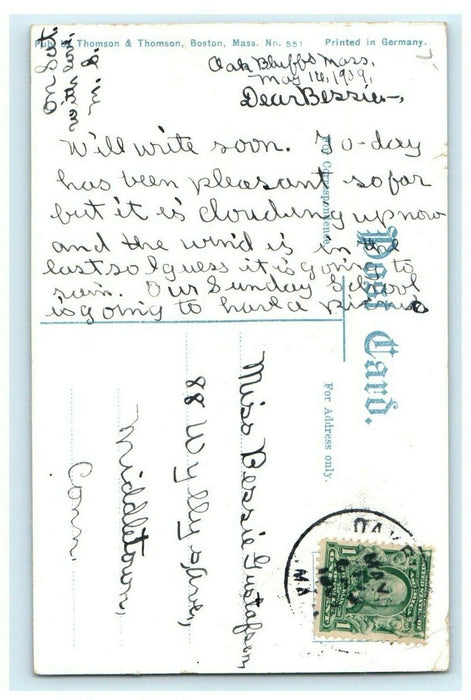 Pub. by Thomson & Thomson, Boston, Mass. No. 551 Printed in Germany.
Oak Bluffs Mass.
May 14, 1909,
Dear Bessie-,
Will write soon. To-day
has been pleasant so far
but it is clouding up now
and the wind is in the
east so I guess it is going to
rain. Our Sunday School
is going to have a picnic
on Sat.
For Correspondence
Post Card.
For Address only.
Miss Bessie Gustafson,
88 Wyllys Ave,
Middletown,
Conn.
OAK
MAY
1909
MA
1
1